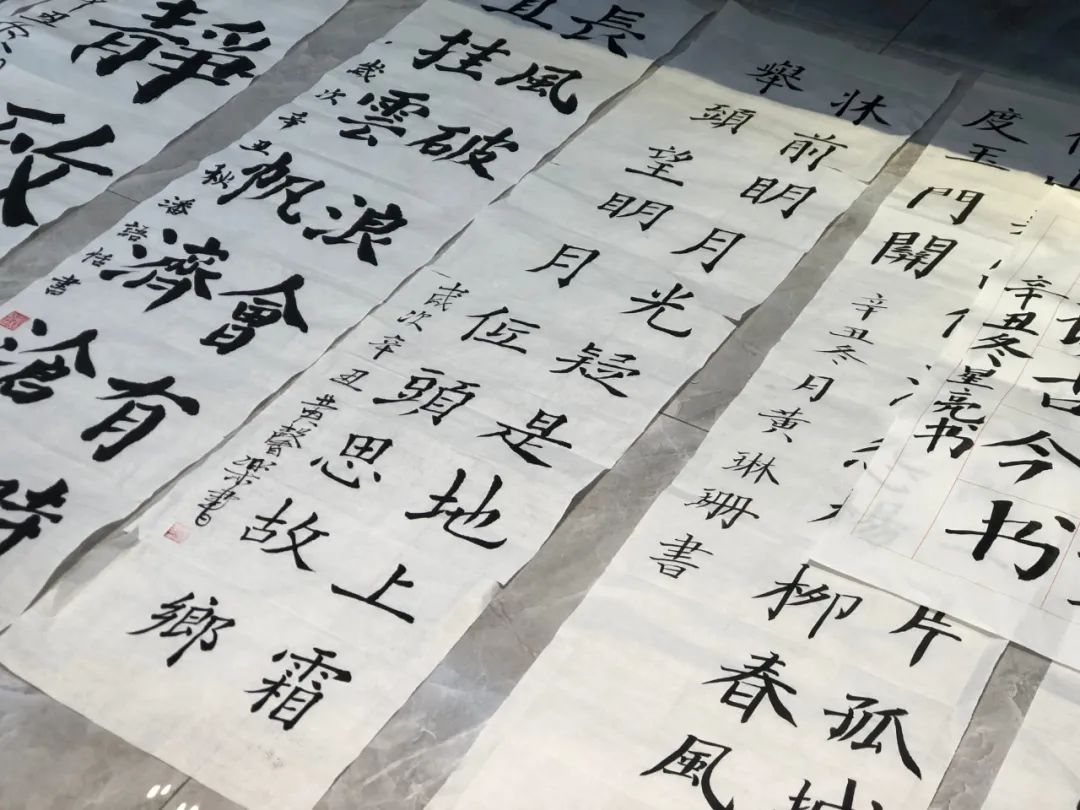 古今书
辛丑冬星亮书
片孤城
柳春風
度玉門關
辛丑冬月黄琳珊書
牀前明月光疑是地上霜
舉頭望明月低頭思故鄉
歲次辛丑黄馨樂書
長風破浪會有時
直挂雲帆濟滄
歲次辛丑秋潘語恬書
靜
致
辛丑